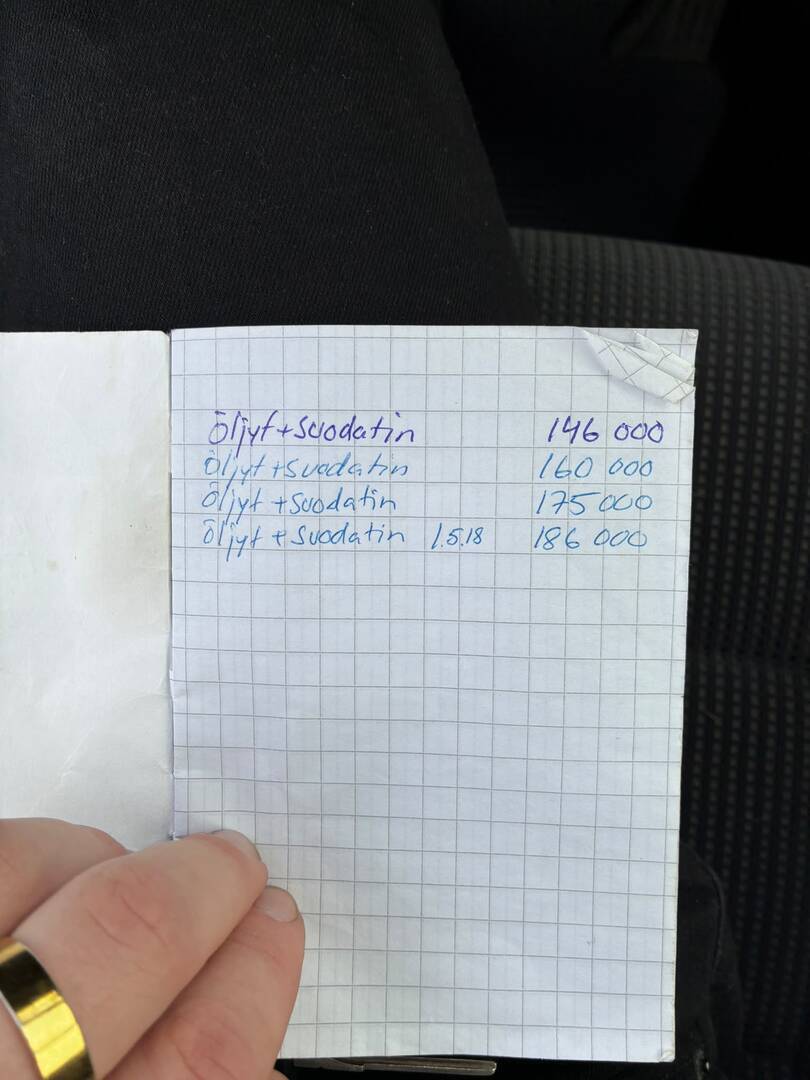 Öljyt+Suodatin 146 000
Öljyt+Suodatin 160 000
Öljyt+Suodatin 175000
Öljyt+Suodatin 1.5.18 186 000